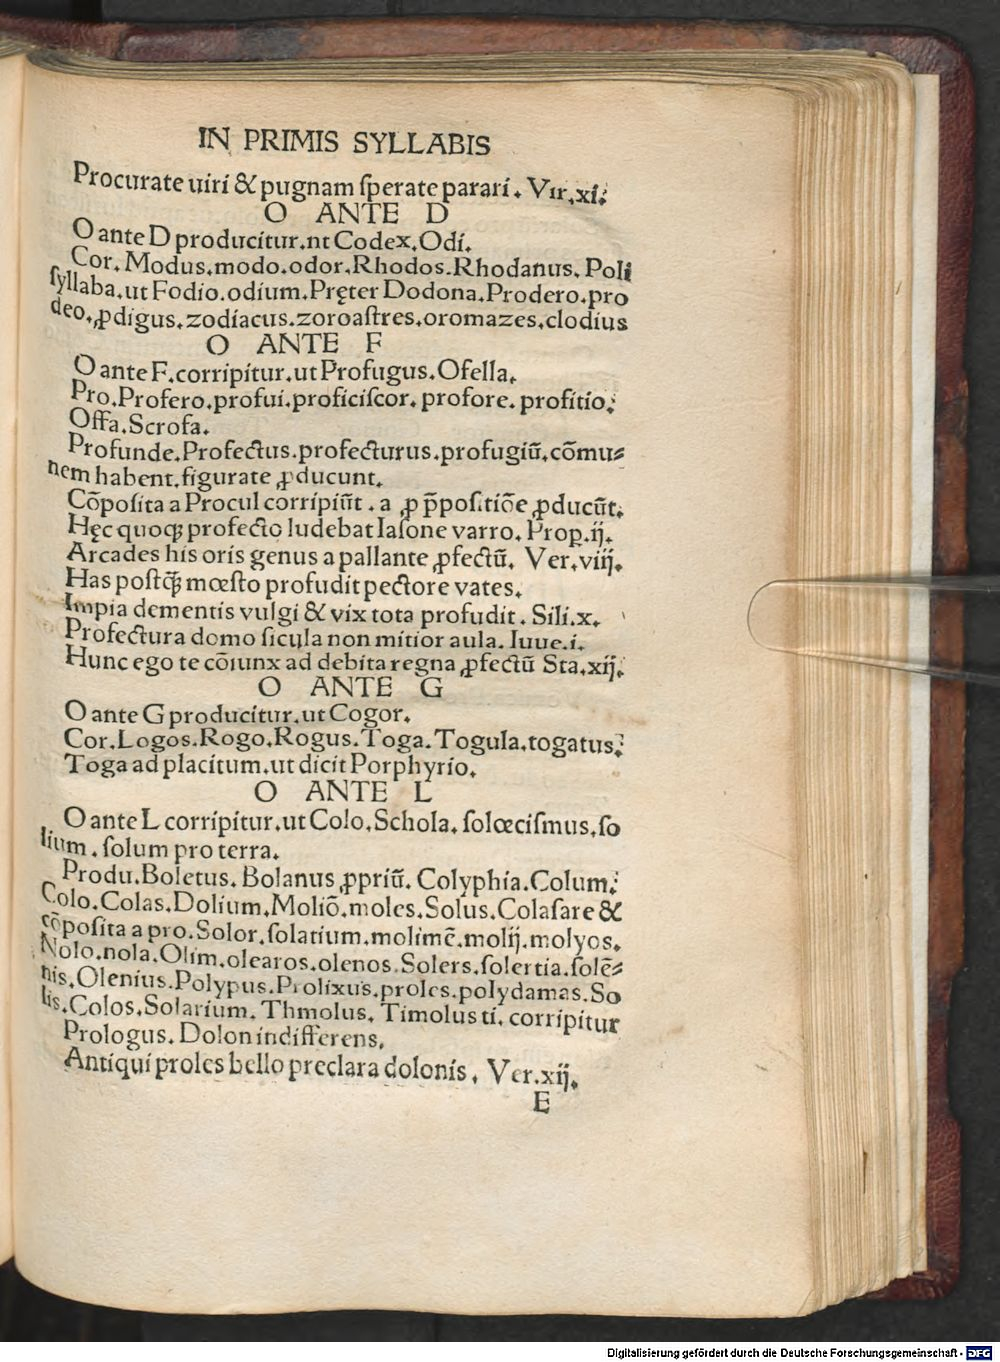 IN PRIMIS SYLLABIS
Procurate uiri & pugnam ſperate parari. Vir.xi.
O ANTE D
O ante D producitur.nt Codex.Odi.
Cor. Modus.modo.odor.Rhodos.Rhodanus. Poli
ſyllaba.ut Fodio.odium.Pręter Dodona.Prodero.pro
deo.ꝓdigus.zodiacus.zoroaſtres.oromazes.clodius
O ANTE F
O ante F.corripitur.ut Profugus.Ofella.
Pro.Profero.profui.proficiſcor.profore.profitio.
Offa.Scrofa.
Profunde.Profectus.profecturus.profugiū.cōmu⸗
nem habent.figurate ꝓducunt.
Cōpoſita a Procul corripiūt . a ꝓ p̄poſitiōe ꝓducūt.
Hęc quoqꝫ profecto ludebat Iaſone varro. Prop.ij.
Arcades his oris genus a pallante ꝓfectū. Ver.viij.
Has poſtꝗ̄ mœſto profudit pectore vates.
Impia dementis vulgi & vix tota profudit. Sili.x.
Profectura domo ſicula non mitior aula. Iuue.i.
Hunc ego te cōiunx ad debita regna ꝓfectū Sta.xij.
O ANTE G
O ante G producitur.ut Cogor.
Cor.Logos.Rogo.Rogus.Toga.Togula.togatus.
Toga ad placitum.ut dicit Porphyrio.
O ANTE L
O ante L corripitur.ut Colo.Schola.ſolœciſmus.ſo
lium.ſolum pro terra.
Produ.Boletus.Bolanus ꝓpriū. Colyphia.Colum.
Colo.Colas.Dolium.Moliō.moles.Solus.Colaſare &
cōpoſita a pro.Solor.ſolatium.molimē.molij.molyos.
Nolo.nola.Olim.olearos.olenos.Solers.ſolertia.ſolē⸗
nis.Olenius.Polypus.Prolixus.proles.polydamas.So
lis.Colos.Solarium. Thmolus. Timolus ti. corripitur
Prologus. Dolon indifferens.
Antiqui proles bello preclara dolonis. Ver.xij.
E
Digitalisierung gefördert durch die Deutsche Forschungsgemeinschaft - DFG